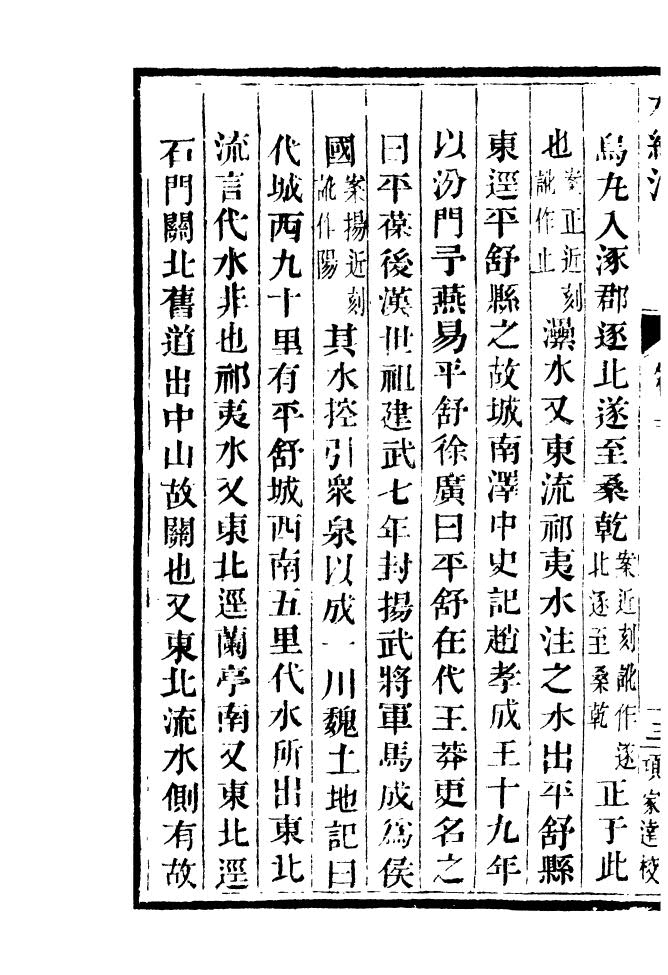 水經注
烏丸入涿郡逐北遂至桑乾案近刻訛作逐北逐至桑乾正于此
也案正近刻訛作止㶟水又東流祁夷水注之水出平舒縣
東逕平舒縣之故城南澤中史記趙孝成王十九年
以汾門予燕易平舒徐廣曰平舒在代王莽更名之
曰平葆後漢世祖建武七年封揚武將軍馬成爲侯
國案揚近刻訛作陽其水控引衆泉以成一川魏土地記曰
代城西九十里有平舒城西南五里代水所出東北
流言代水非也祁夷水又東北逕蘭亭南又東北逕
石門關北舊道出中山故關也又東北流水側有故
項家達校